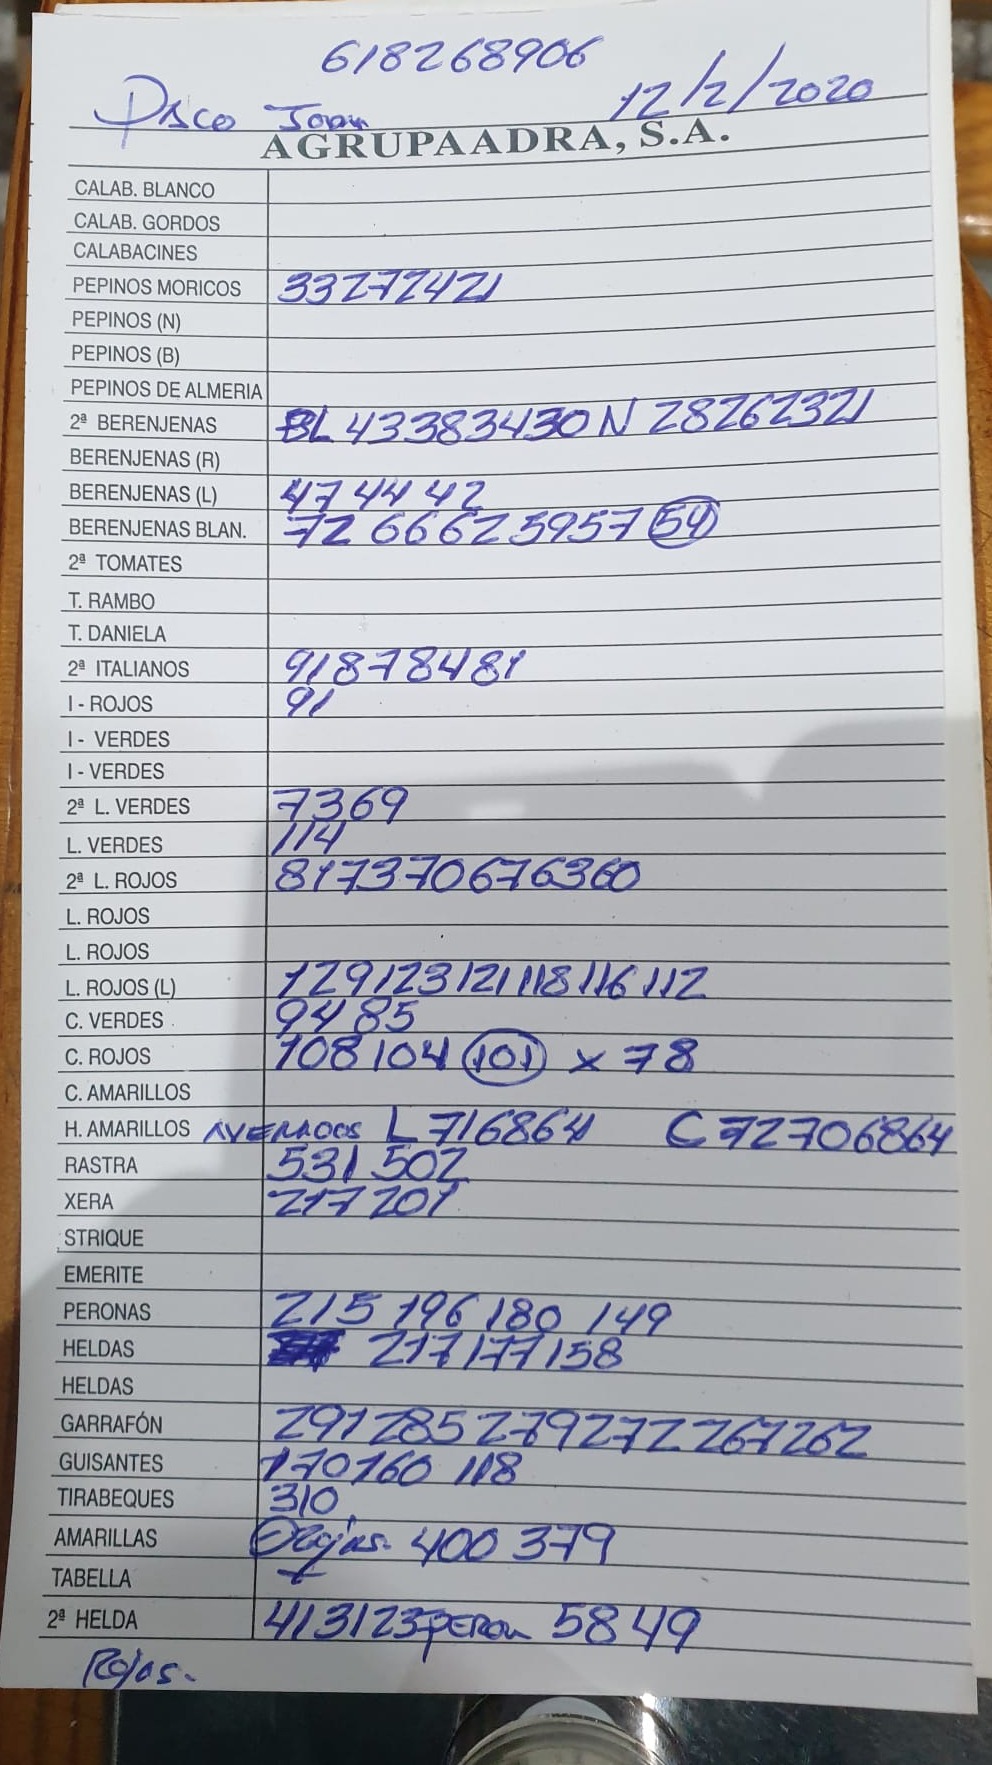 618268906
Paco Joan 12/2/2020
AGRUPAADRA, S.A.
CALAB. BLANCO
CALAB. GORDOS
CALABACINES
PEPINOS MORICOS 33272421
PEPINOS (N)
PEPINOS (B)
PEPINOS DE ALMERIA
2ª BERENJENAS BL 43383430 N 28262321
BERENJENAS (R)
BERENJENAS (L) 47 44 42
BERENJENAS BLAN. 72 66 62 59 57 54
2ª TOMATES
T. RAMBO
T. DANIELA
2ª ITALIANOS 91878481
I - ROJOS 91
I - VERDES
I - VERDES
2ª L. VERDES 7369
L. VERDES 114
2ª L. ROJOS 817370676360
L. ROJOS
L. ROJOS
L. ROJOS (L) 129 123 121 118 116 112
C. VERDES 94 85
C. ROJOS 108 104 101 x 78
C. AMARILLOS
H. AMARILLOS L 716864 C 72706864
RASTRA 531 502
XERA 217 201
STRIQUE
EMERITE
PERONAS 215 196 180 149
HELDAS 217 177 158
HELDAS
GARRAFÓN 291 285 279 272 267 262
GUISANTES 170 160 118
TIRABEQUES 310
AMARILLAS Rojas. 400 379
TABELLA
2ª HELDA 413123 peron 58 49
Rojas.